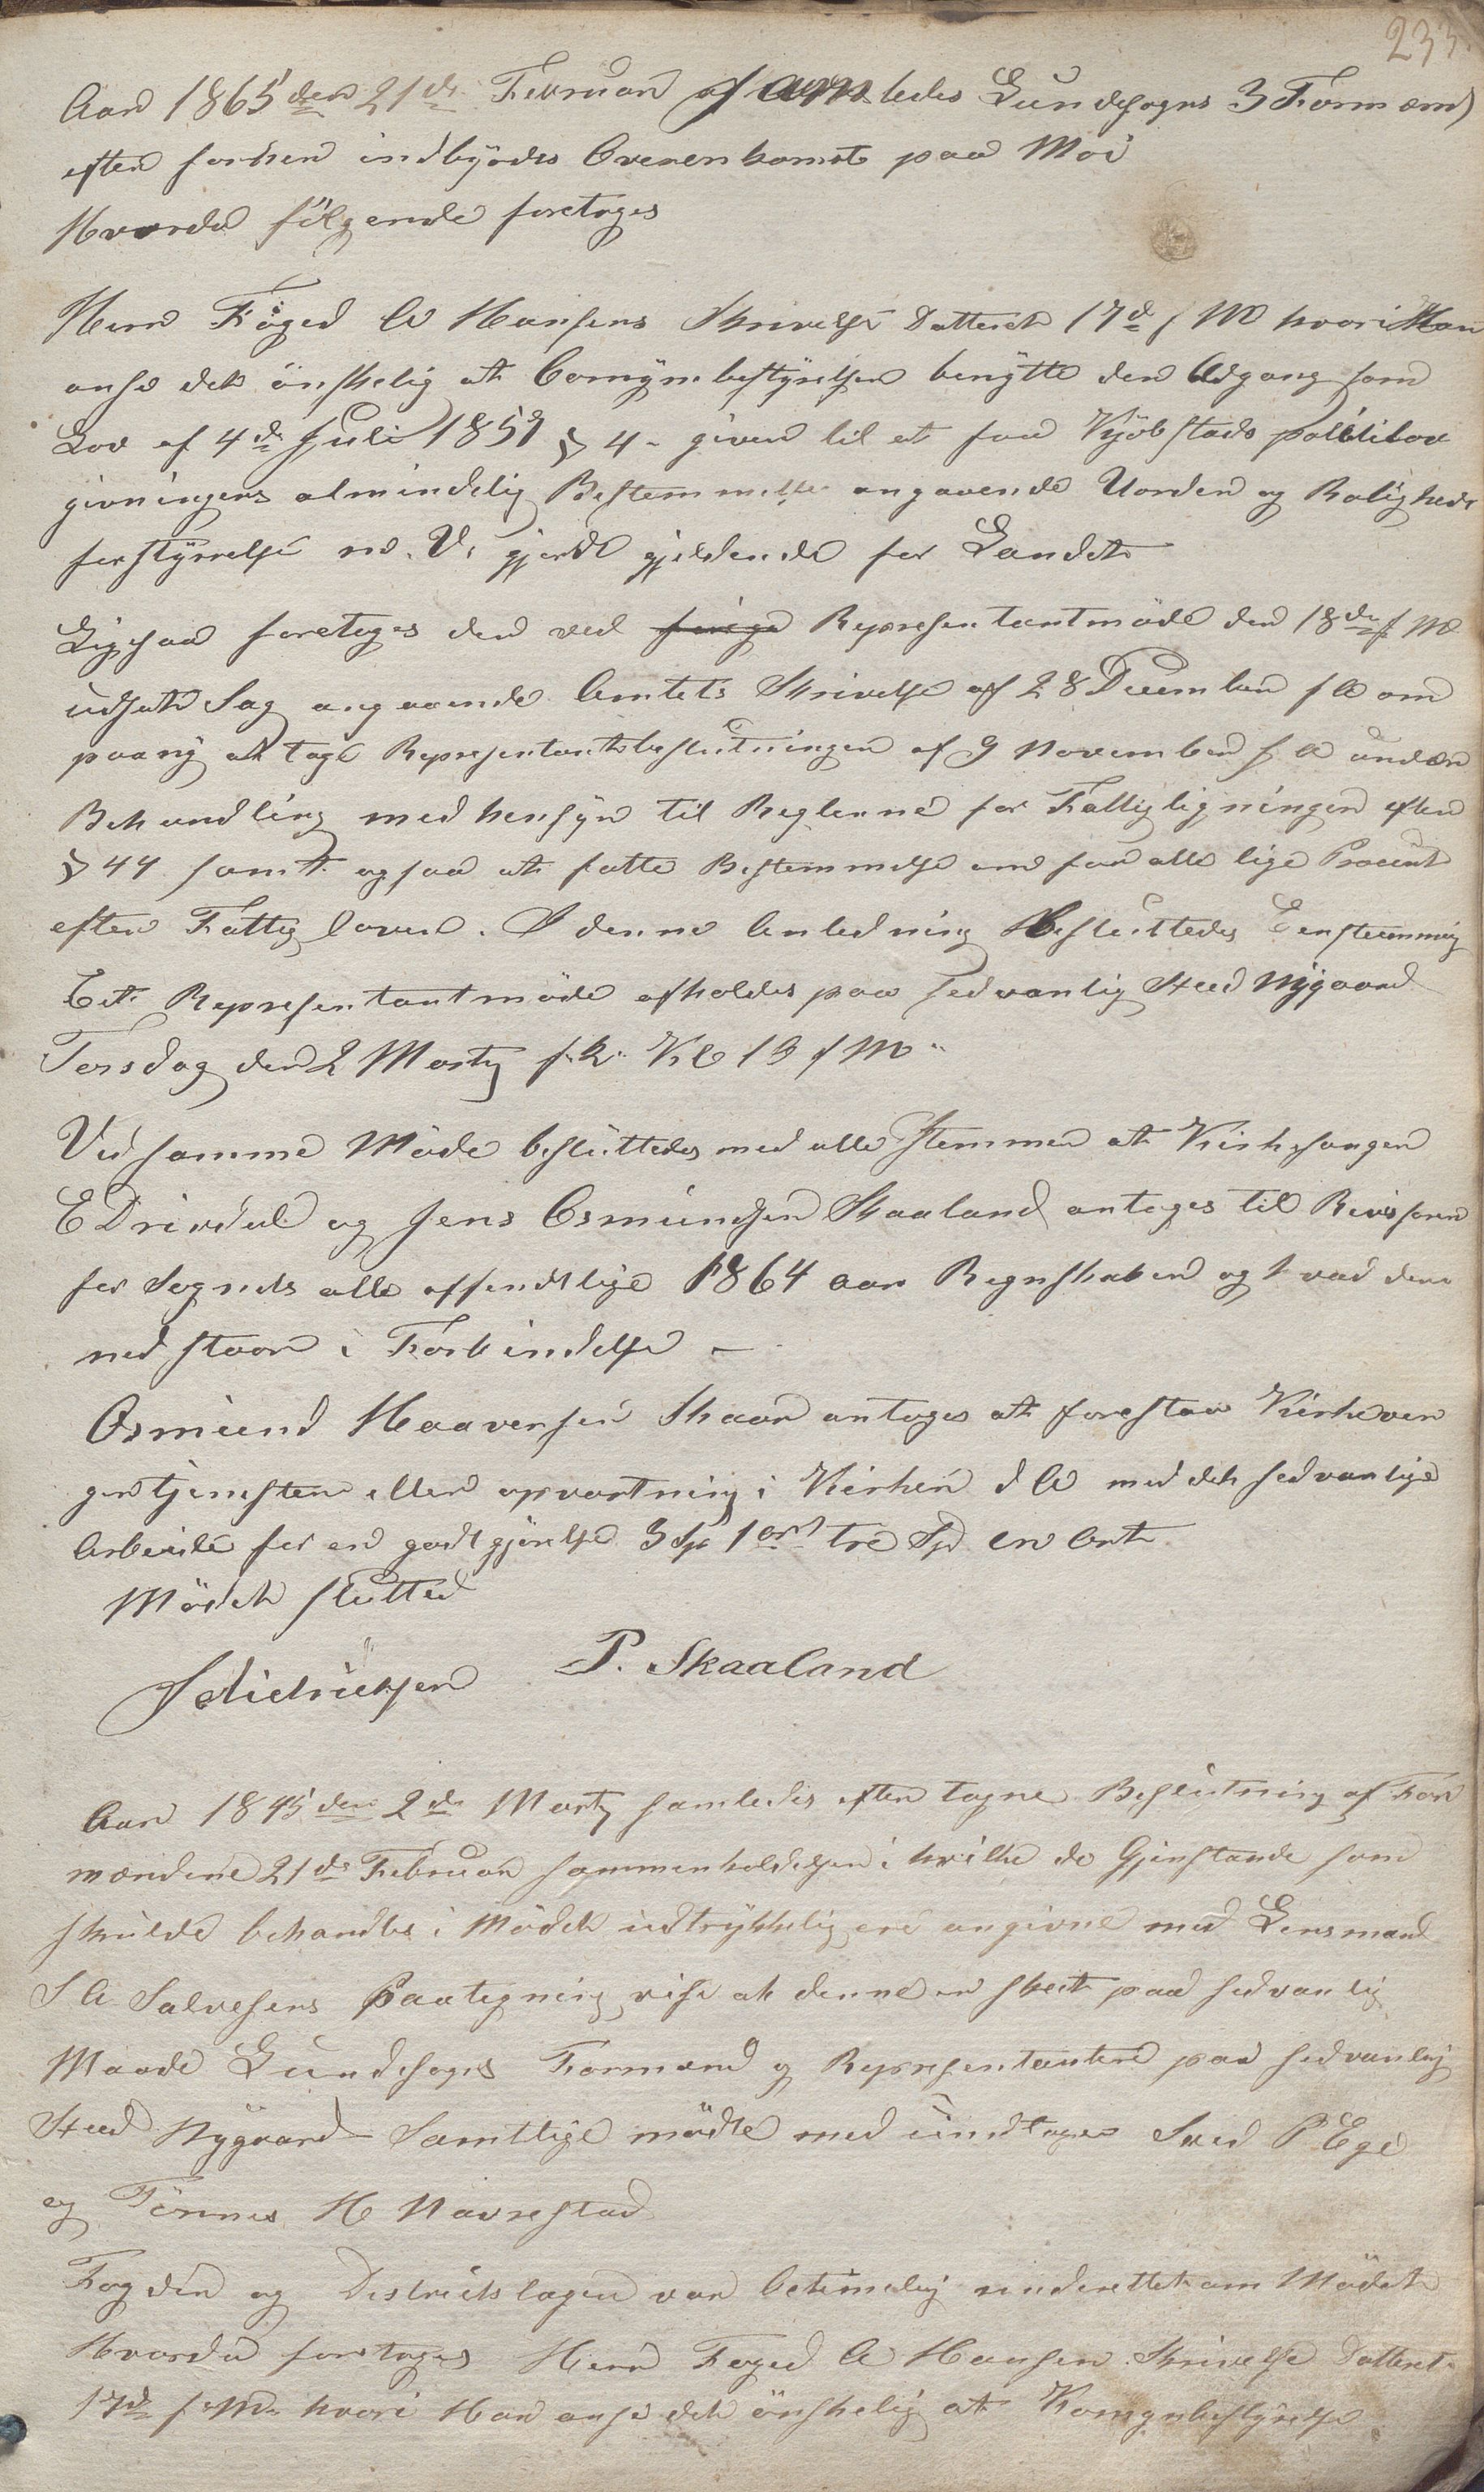 233
Aar 1865 den 21de Februar samledes Lundesogns 3 Formænd
efter forhen indbyrdes Overenkomst paa Moi
Hvorda følgende foretoges
Herr Foged A Hansens Skrivelse Datteret 17d f M hvori Han
anse det ønskelig at Comynbestyrelsen benytte den Adgang som
Lov af 4de Juli 1857 § 4 - giver til at faa Kjøbstads politilov
givningens almindelig Bestemmelse angaaende Uorden og Roligheds
forstyrrelse m. V. gjordt gjeldende for Landet
Ligesaa foretoges den ved forige Representantmøde den 18de f M
udsate Sag angaaende Amtets Skrivelse af 28 December f A om
paany at tage Representantbeslutningen af 9 November f A under
Behandling med hensyn til Reglerne for Fattigligningen efter
§ 44 samt ogsaa at fatte Bestemmelse om for alle lige Procent
efter Fattigloven. I denne Anledning Besluttedes Eenstemmig
Eet Representantmøde afholdes paa sedvanlig Sted Nygaard
Torsdag den 2 Marty f. k. Kl 13 f M
Ved samme Møde besluttedes med alle Stemmer at Kirkesanger
E Drivdal og Jens Osmundsen Skaaland antoges til Revisorer
for Sognets alle offendtlige 1864 aar Regnskaber og hvad der
med staar i Forbindelse -
Osmund Haaversen Skaar antoges at forestaa Kirkever
gertjenesten eller opvartning i Kirken d A med det sedvanlige
Arbeide for en godtgjørelse 3 Sp 1 ort tre Sp en Ort
Mødet sluttet
J Didricksen P. Skaaland
Aar 1845 den 2de Marty samledes efter tagne Beslutning af For
mændene 21de Februar sammenholdelsen i hvilke de Gjenstande som
skulde behandles i Mødet udtrykkelig ere angivne med Lensmand
S A Salvesens Paategning vise at denne er skeet paa sedvanlig
Maade Lundesogns Formænd og Representantere paa sedvanlig
Sted Nygaard Samtlige mødte med undtage Sved P Ege
og Tønnes H Navrestad
Fogden og Districtslægen var betimelig underettet om Mødet
Hvorda foretoges Herr Foged A Hansen Skrivelse Datteret
17de f M hvori Han anse det ønskelig at Komynbestyrelse